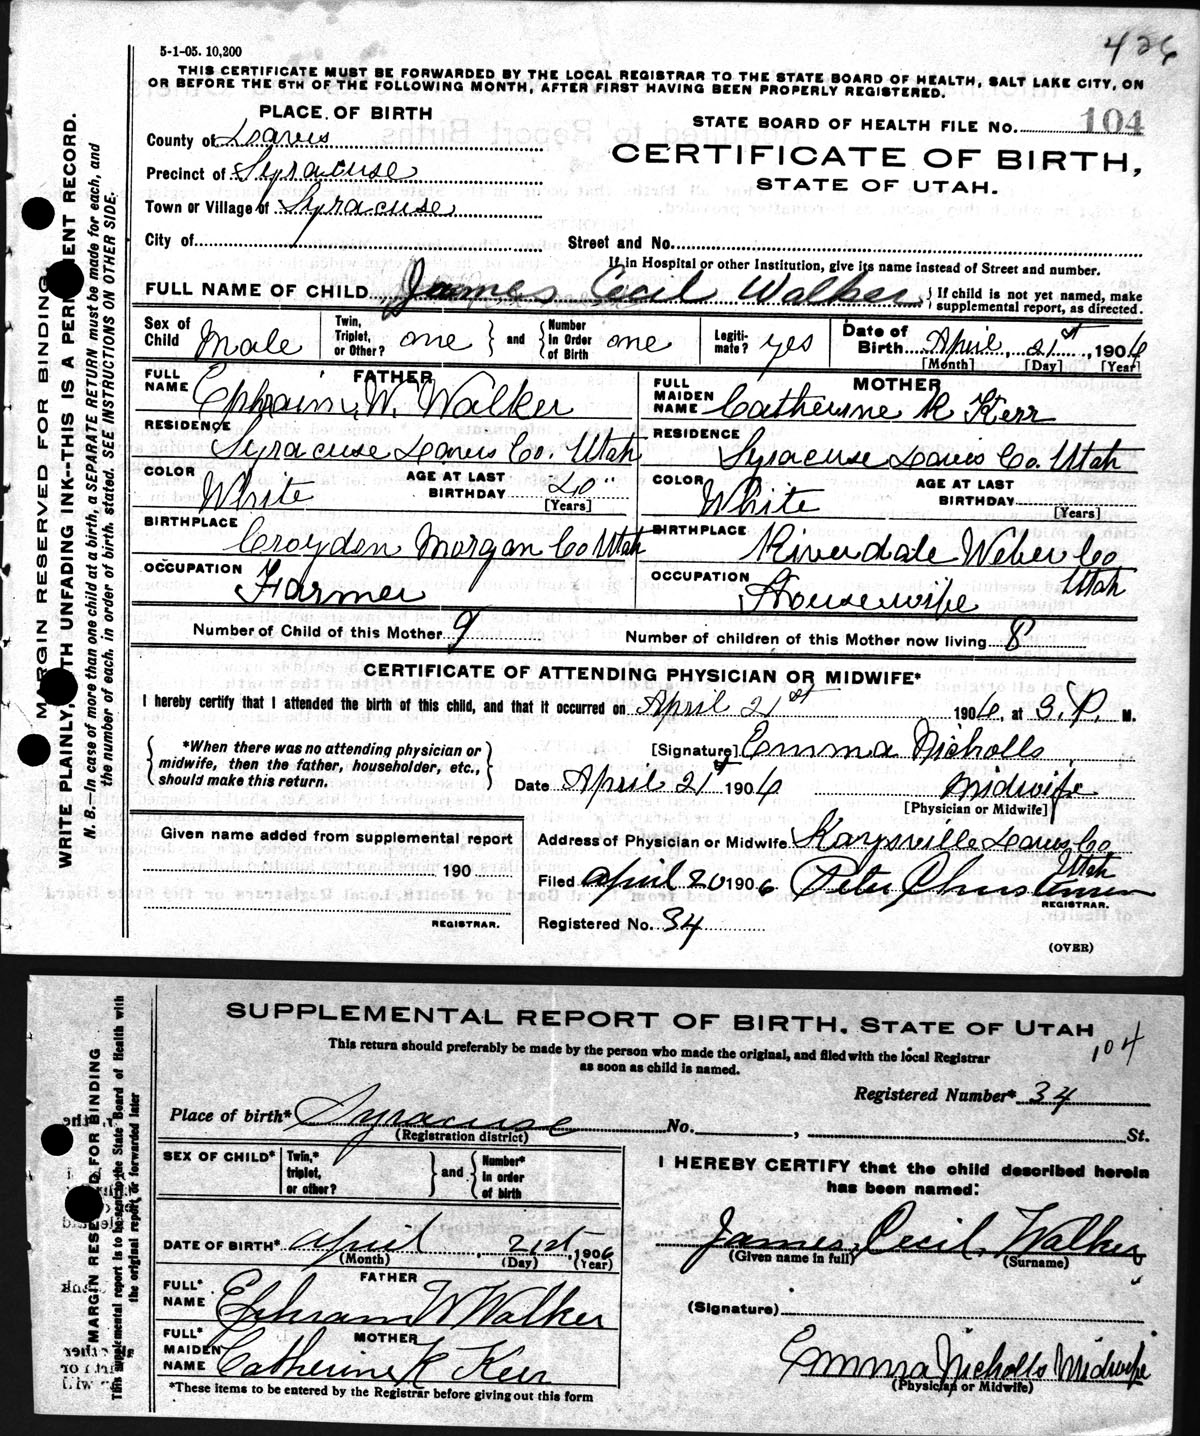 426
5-1-05. 10,200
THIS CERTIFICATE MUST BE FORWARDED BY THE LOCAL REGISTRAR TO THE STATE BOARD OF HEALTH, SALT LAKE CITY, ON
OR BEFORE THE 5TH OF THE FOLLOWING MONTH, AFTER FIRST HAVING BEEN PROPERLY REGISTERED.
PLACE OF BIRTH
STATE BOARD OF HEALTH FILE No. 104
County of Davis
CERTIFICATE OF BIRTH,
Precinct of Syracuse
STATE OF UTAH.
Town or Village of Syracuse
City of
Street and No.
If in Hospital or other Institution, give its name instead of Street and number.
FULL NAME OF CHILD James Cecil Walker { If child is not yet named, make supplemental report, as directed.
Sex of Child Male Twin, Triplet, or Other? one } and { Number in Order of Birth one Legitimate? yes Date of Birth April, 21st, 1906
[Month] [Day] [Year]
FATHER
FULL NAME Ephraim W. Walker
RESIDENCE Syracuse Davis Co. Utah
COLOR White AGE AT LAST BIRTHDAY 40
[Years]
BIRTHPLACE Croyden Morgan Co Utah
OCCUPATION Farmer
MOTHER
FULL MAIDEN NAME Catherine K Kerr
RESIDENCE Syracuse Davis Co. Utah
COLOR White AGE AT LAST BIRTHDAY
[Years]
BIRTHPLACE Riverdale Weber Co
Utah
OCCUPATION Housewife
Number of Child of this Mother 9 Number of children of this Mother now living 8
CERTIFICATE OF ATTENDING PHYSICIAN OR MIDWIFE*
I hereby certify that I attended the birth of this child, and that it occurred on April 21st 1906, at 3. P. M.
{ *When there was no attending physician or
midwife, then the father, householder, etc.,
should make this return. }
[Signature] Emma Nicholls
Date April 21st 1906 Midwife
[Physician or Midwife]
Given name added from supplemental report
190
REGISTRAR.
Address of Physician or Midwife Kaysville Davis Co
Utah
Filed April 20 1906 Peter Christensen
REGISTRAR.
Registered No. 34
(OVER)
MARGIN RESERVED FOR BINDING
WRITE PLAINLY, WITH UNFADING INK--THIS IS A PERMANENT RECORD.
N. B.—In case of more than one child at a birth, a SEPARATE RETURN must be made for each, and
the number of each, in order of birth, stated. SEE INSTRUCTIONS ON OTHER SIDE.
SUPPLEMENTAL REPORT OF BIRTH. STATE OF UTAH
104
This return should preferably be made by the person who made the original, and filed with the local Registrar
as soon as child is named.
Registered Number* 34
Place of birth* Syracuse No. , St.
(Registration district)
SEX OF CHILD* Twin,* triplet, or other? } and { Number* in order of birth
DATE OF BIRTH* April, 21st, 1906
(Month) (Day) (Year)
FATHER
FULL* NAME Ephram W Walker
MOTHER
FULL* MAIDEN NAME Catherine K Kerr
*These items to be entered by the Registrar before giving out this form
I HEREBY CERTIFY that the child described herein
has been named:
James Cecil Walker
(Given name in full) (Surname)
(Signature)
Emma Nicholls Midwife
(Physician or Midwife)
MARGIN RESERVED FOR BINDING
This supplemental report is to be sent to the State Board of Health with
the original report, or forwarded later